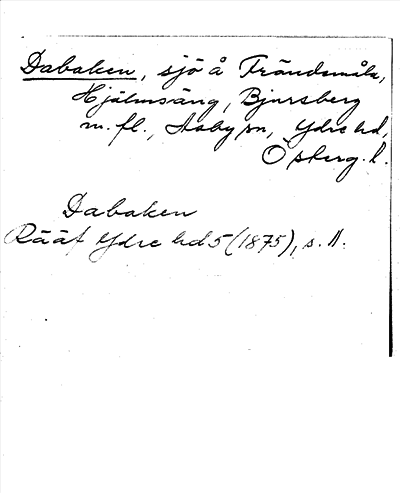 Dabaken, sjö å Frändsmåla,
Hjälmsäng, Bjursberg
m. fl., Asby sn, Ydre hd,
Östergl.
Dabaken
Rääf Ydre hd 5 (1875), s. 11.